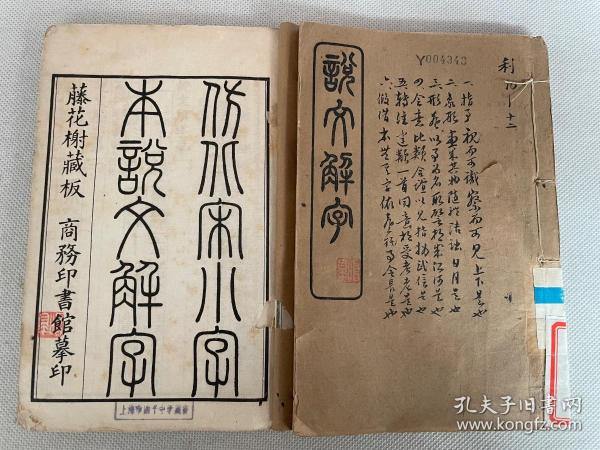 仿北宋小字
本說文解字
藤花榭藏板 商務印書館摹印
Y004343
一指事 視而可識察而可見 上下是也
二象形 畫成其物随體诘詘 日月是也
三形聲 以事為名取譬相成江河是也
四會意 比類合誼以見指撝武信是也
五轉注 建類一首同意相受考老是也
六假借 本無其字依聲託事令長是也
說文解字
孔夫子旧书网
www.kongfz.com